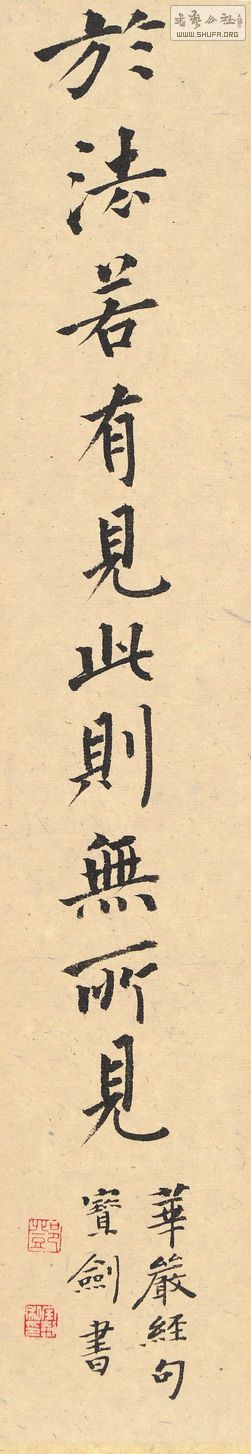 於法若有見此則無所見
華嚴経句
寶劍書
書藝公社
WWW.SHUFA.ORG